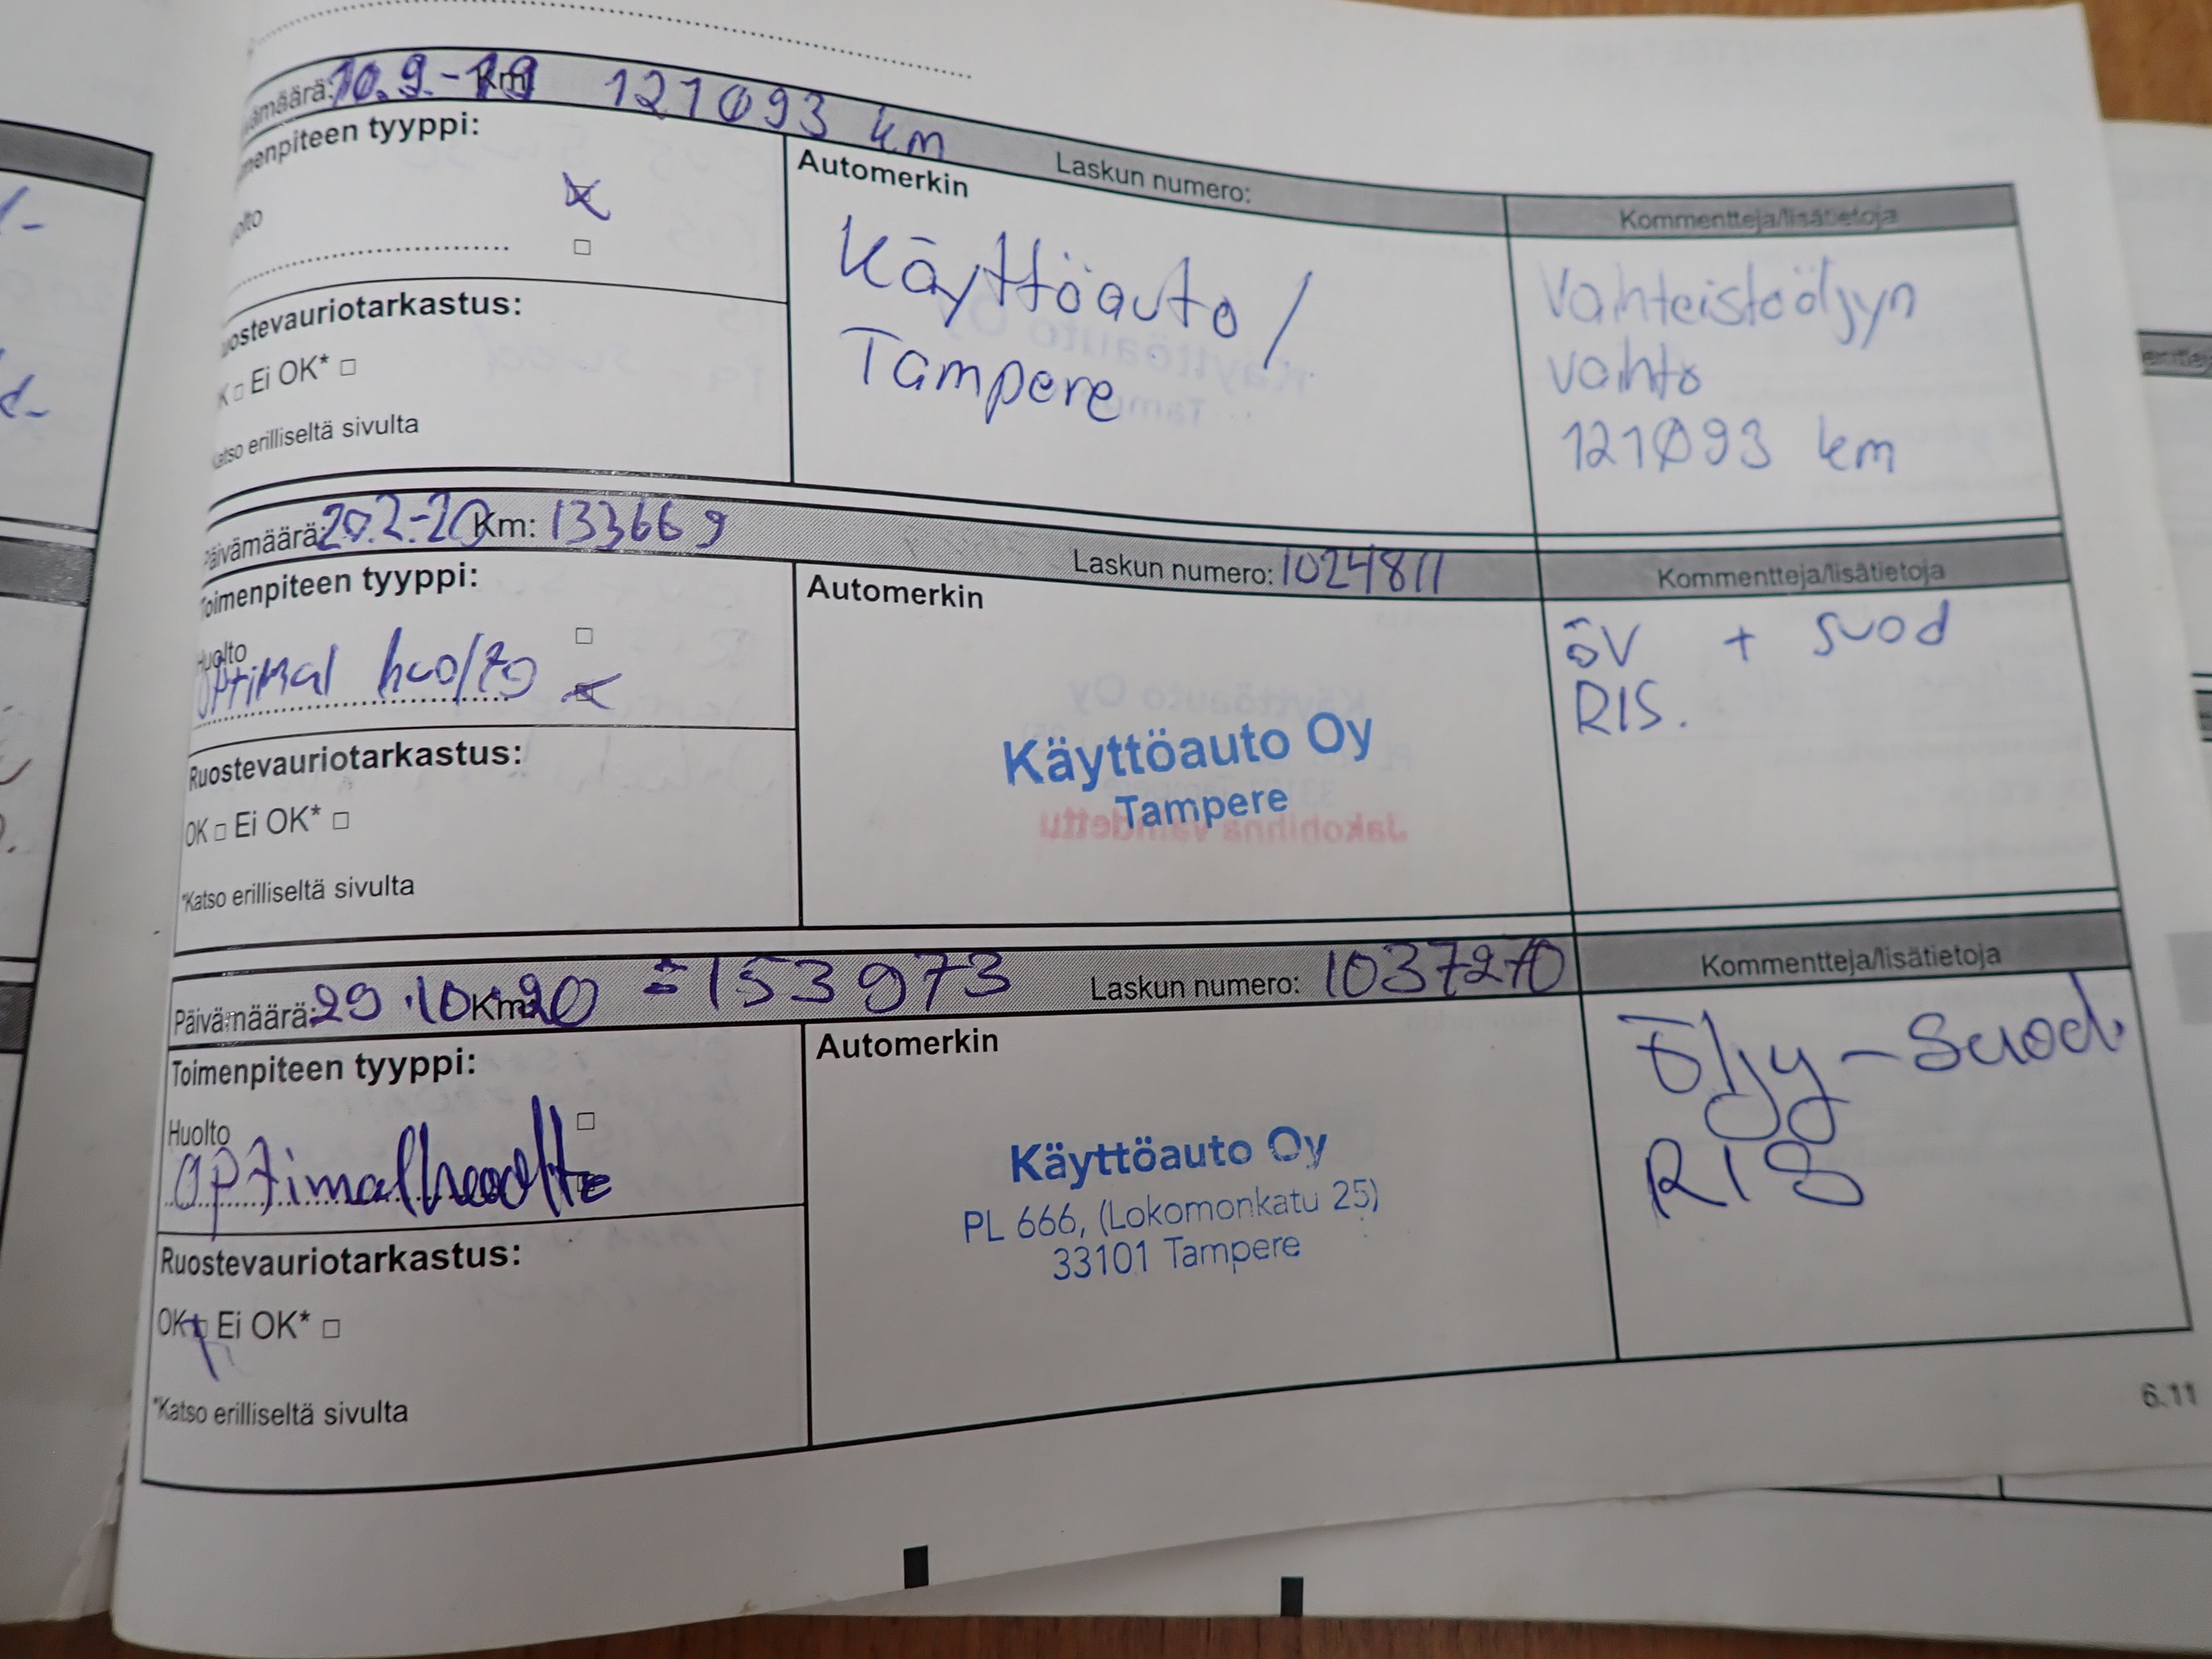 Päivämäärä: 10.9.-19 Km 121093 km Laskun numero:
Toimenpiteen tyyppi:
Automerkin
Kommentteja/lisätietoja
Huolto
Käyttöauto /
Tampere
Vaihteistoöljyn
vaihto
121093 km
Ruostevauriotarkastus:
OK □ Ei OK* □
Katso erilliseltä sivulta
Päivämäärä: 20.2-20 Km: 133669 Laskun numero: 1024811
Kommentteja/lisätietoja
Toimenpiteen tyyppi:
Automerkin
Huolto
optimal huolto
öV + suod
RIS.
Käyttöauto Oy
Tampere
Ruostevauriotarkastus:
OK □ Ei OK* □
*Katso erilliseltä sivulta
Päivämäärä: 29.10.20 Km: 153973 Laskun numero: 1037270
Kommentteja/lisätietoja
Toimenpiteen tyyppi:
Automerkin
Huolto
optimalhuolto
Öljy-suod.
RIS
Käyttöauto Oy
PL 666, (Lokomonkatu 25)
33101 Tampere
Ruostevauriotarkastus:
OK □ Ei OK* □
*Katso erilliseltä sivulta
6.11